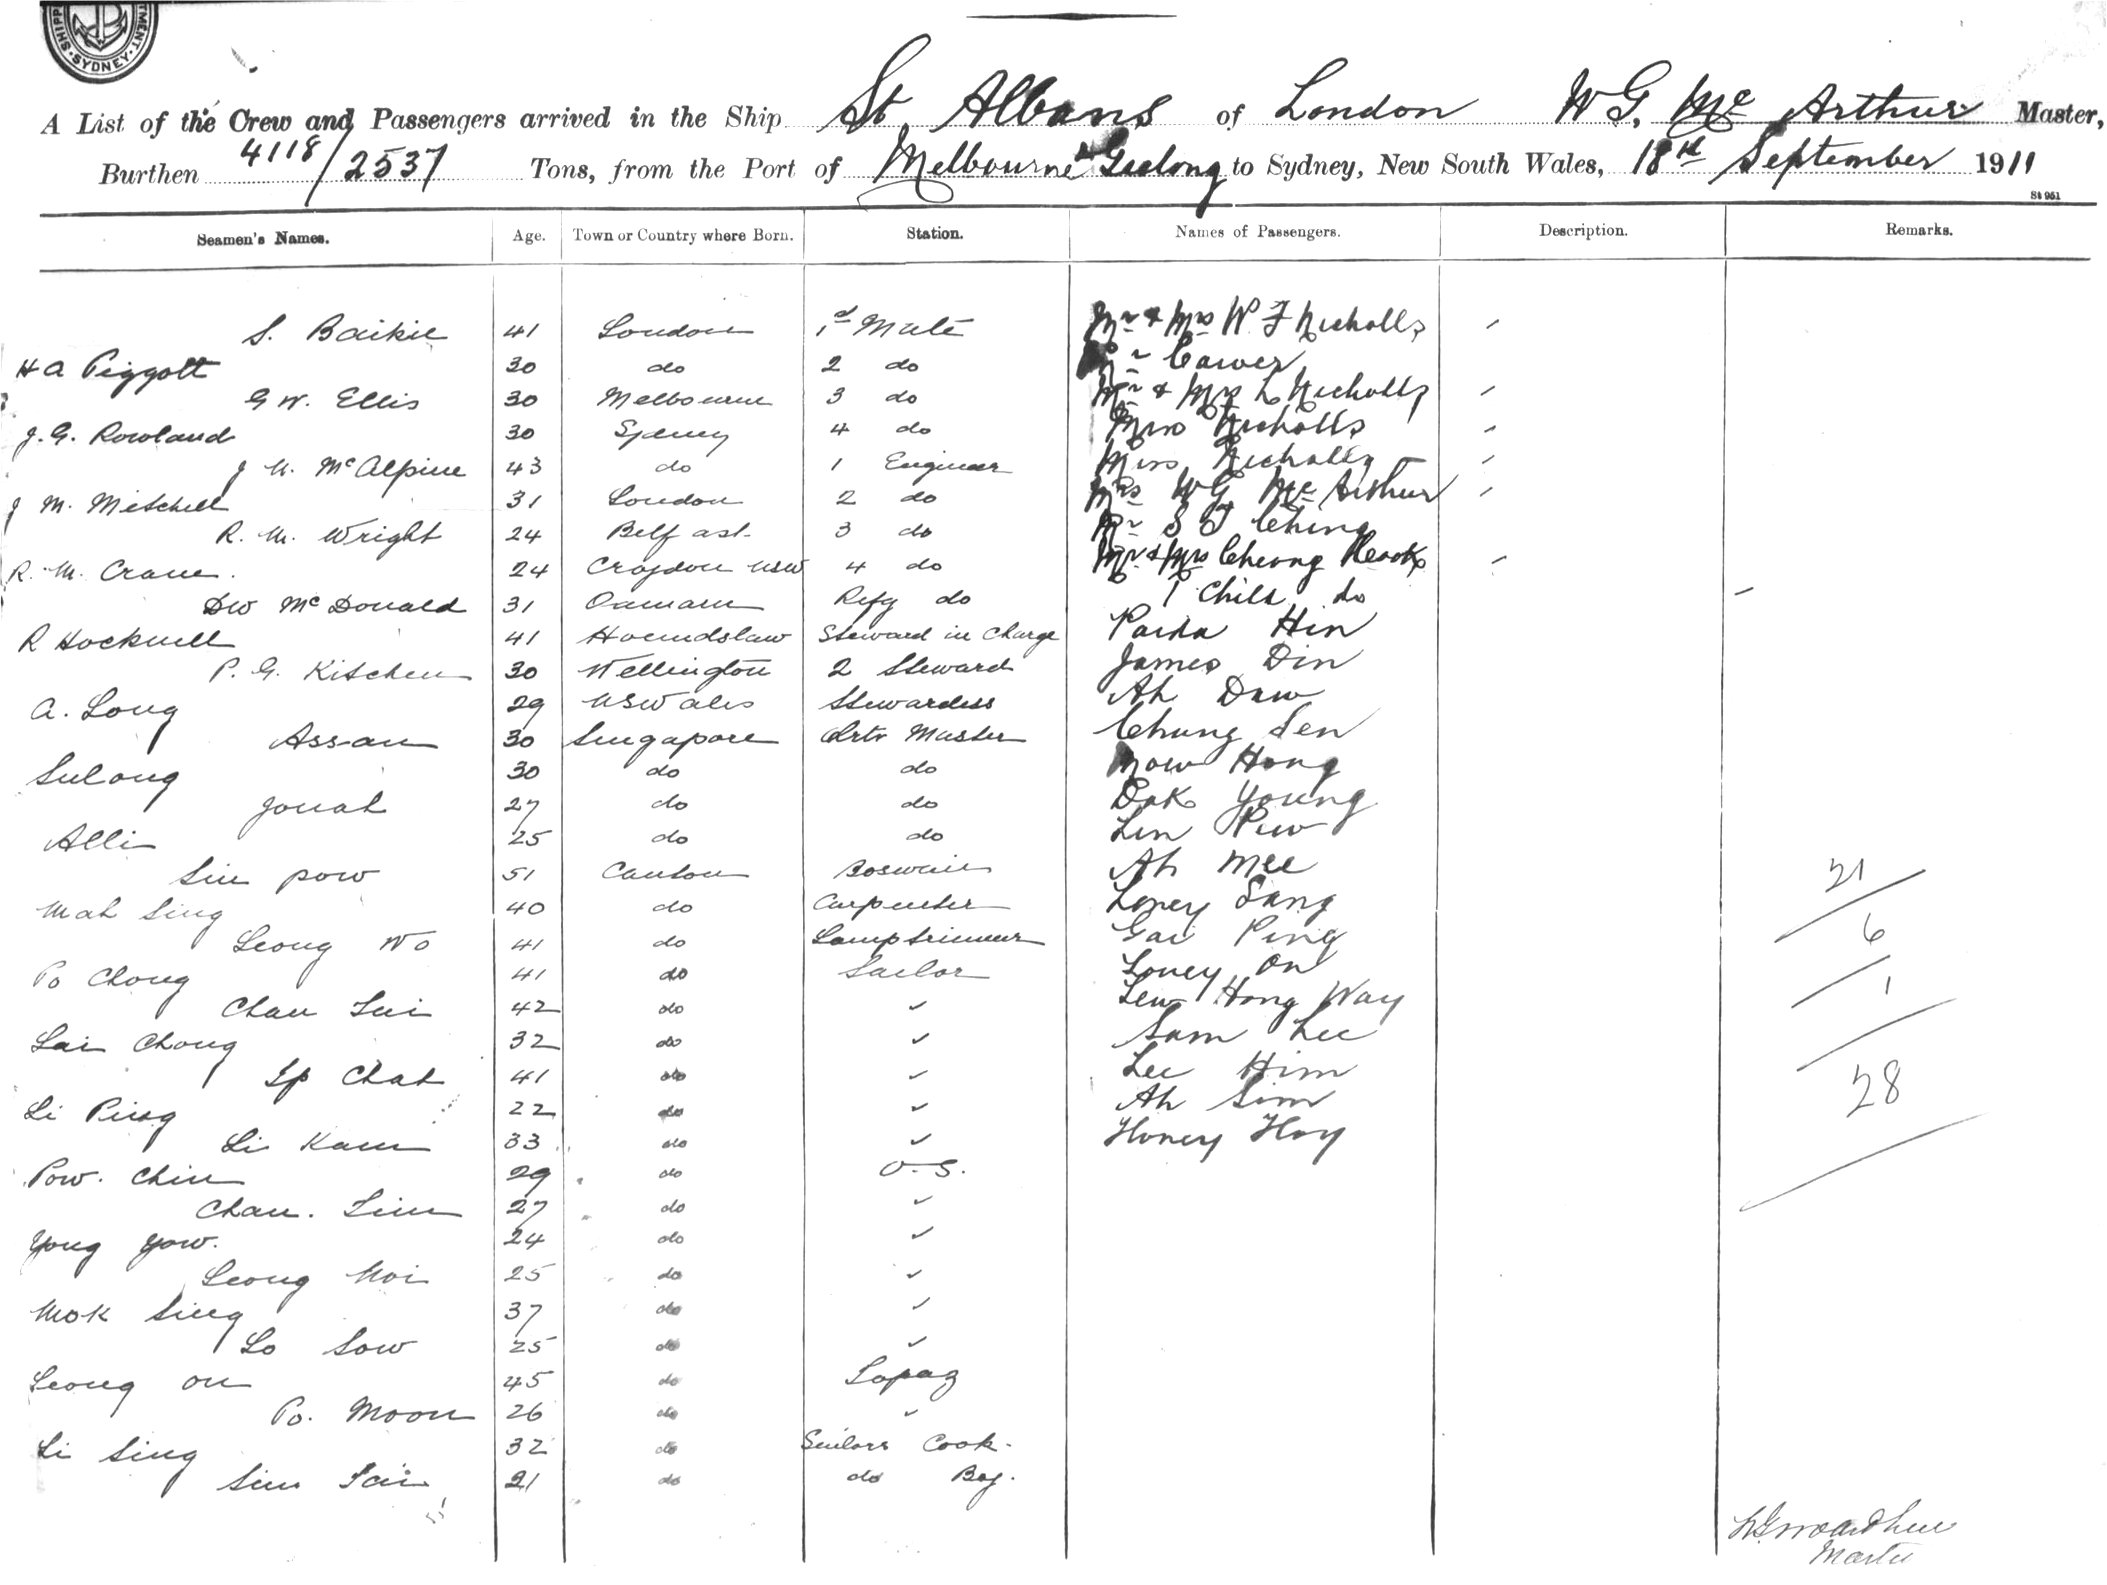 SHIPP
SYDNEY
TMENT
A List of the Crew and Passengers arrived in the Ship St Albans of London W G, Mc Arthur Master,
Burthen 4118/2537 Tons, from the Port of Melbourne & Geelong to Sydney, New South Wales, 18th September 1911
St 951
Seamen's Names. Age. Town or Country where Born. Station. Names of Passengers. Description. Remarks.
S. Baikie 41 London 1st Mate Mr & Mrs W. F Nicholls
H A Piggott 30 do 2 do Mr Cawer
G W. Ellis 30 Melbourne 3 do Mr & Mrs L Nicholls
J. G. Rowland 30 Sydney 4 do Miss Nicholls
J M. McAlpine 43 do 1 Engineer Miss Nicholls
J M. Mitchell 31 London 2 do Mrs W G Mc Arthur
R. M. Wright 24 Belfast 3 do Mr S T Ching
R. M. Crane. 24 Croydon NSW 4 do Mr & Mrs Cheong
DW McDonald 31 Oamaru Refg do 1 Child do
R Hocknell 41 Houndslaw Steward in Charge Hin
P. G. Kitchen 30 Wellington 2 Steward James Din
A. Long 29 NSWales Stewardess Ah Daw
Assan 30 Singapore Qrtr Master Chung Sen
Sulong 30 do do Mow Hong
Jonah 27 do do Dak Young
Alli 25 do do Lin Pew
Sin pow 51 Canton Boswain Ah Mee
Mah Sing 40 do Carpenter Loney Sang 21
Leong Wo 41 do Lamptrimmer Gai Ping 6
Po Chong 41 do Sailor Loney On
Chan Sui 42 do ✓ Lew Hong Way 1
Lai Chong 32 do ✓ Sam Lee
Ip Chat 41 do ✓ Lee Him 28
Li Ping 22 do ✓ Ah Sim
Li Kam 33 do ✓ Honey Hoy
Pow. Chin 29 do O. S.
Chan. Lim 27 do ✓
Yong Yow. 24 do ✓
Leong Moi 25 do ✓
Mok Sing 37 do ✓
Lo Sow 25 do ✓
Leong on 45 do Topaz
Po. Moon 26 do ✓
Li Sing 32 do Sailors Cook.
Sim Tai 21 do do Boy.
W G McArthur
Master